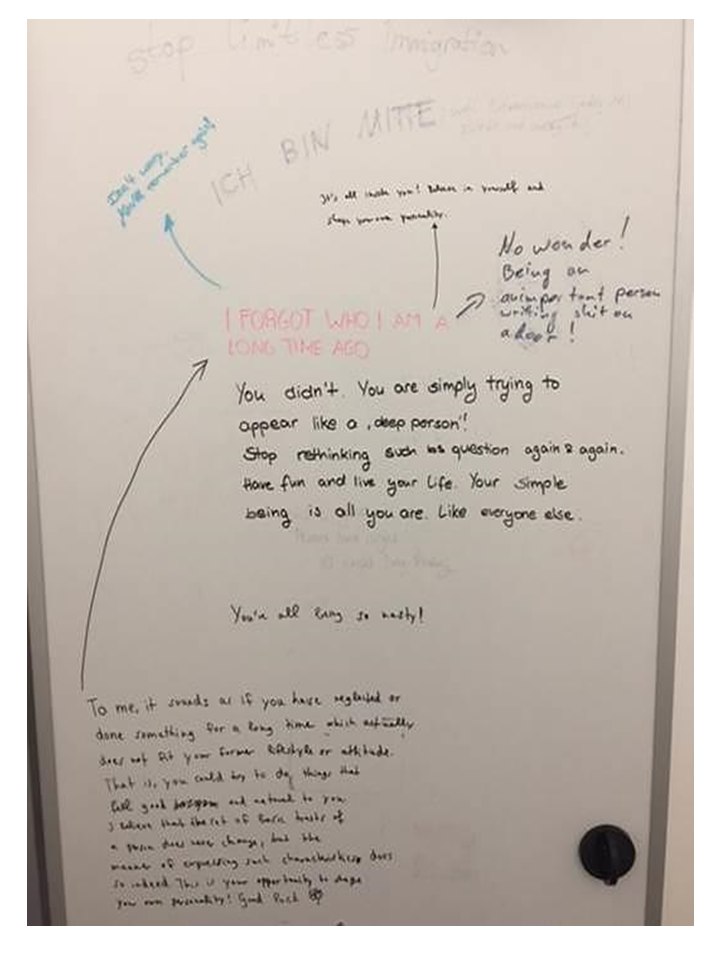 stop limitless immigration
ICH BIN MITTE
Don't worry,
never remember again!
It's all inside you! Believe in yourself and
shape your own personality.
No wonder!
Being an
unimportant person
writing shit on
a door!
I FORGOT WHO I AM A
LONG TIME AGO
You didn't. You are simply trying to
appear like a „deep person"!
Stop rethinking such question again & again.
Have fun and live your life. Your simple
being is all you are. Like everyone else.
You're all being so nasty!
To me, it sounds as if you have neglected or
done something for a long time which actually
does not fit your former lifestyle or attitude.
That is, you could try to do things that
feel good and natural to you.
I believe that the set of basic traits of
a person does never change, but the
manner of expressing such characteristics does
so indeed. This is your opportunity to shape
your own personality! Good luck